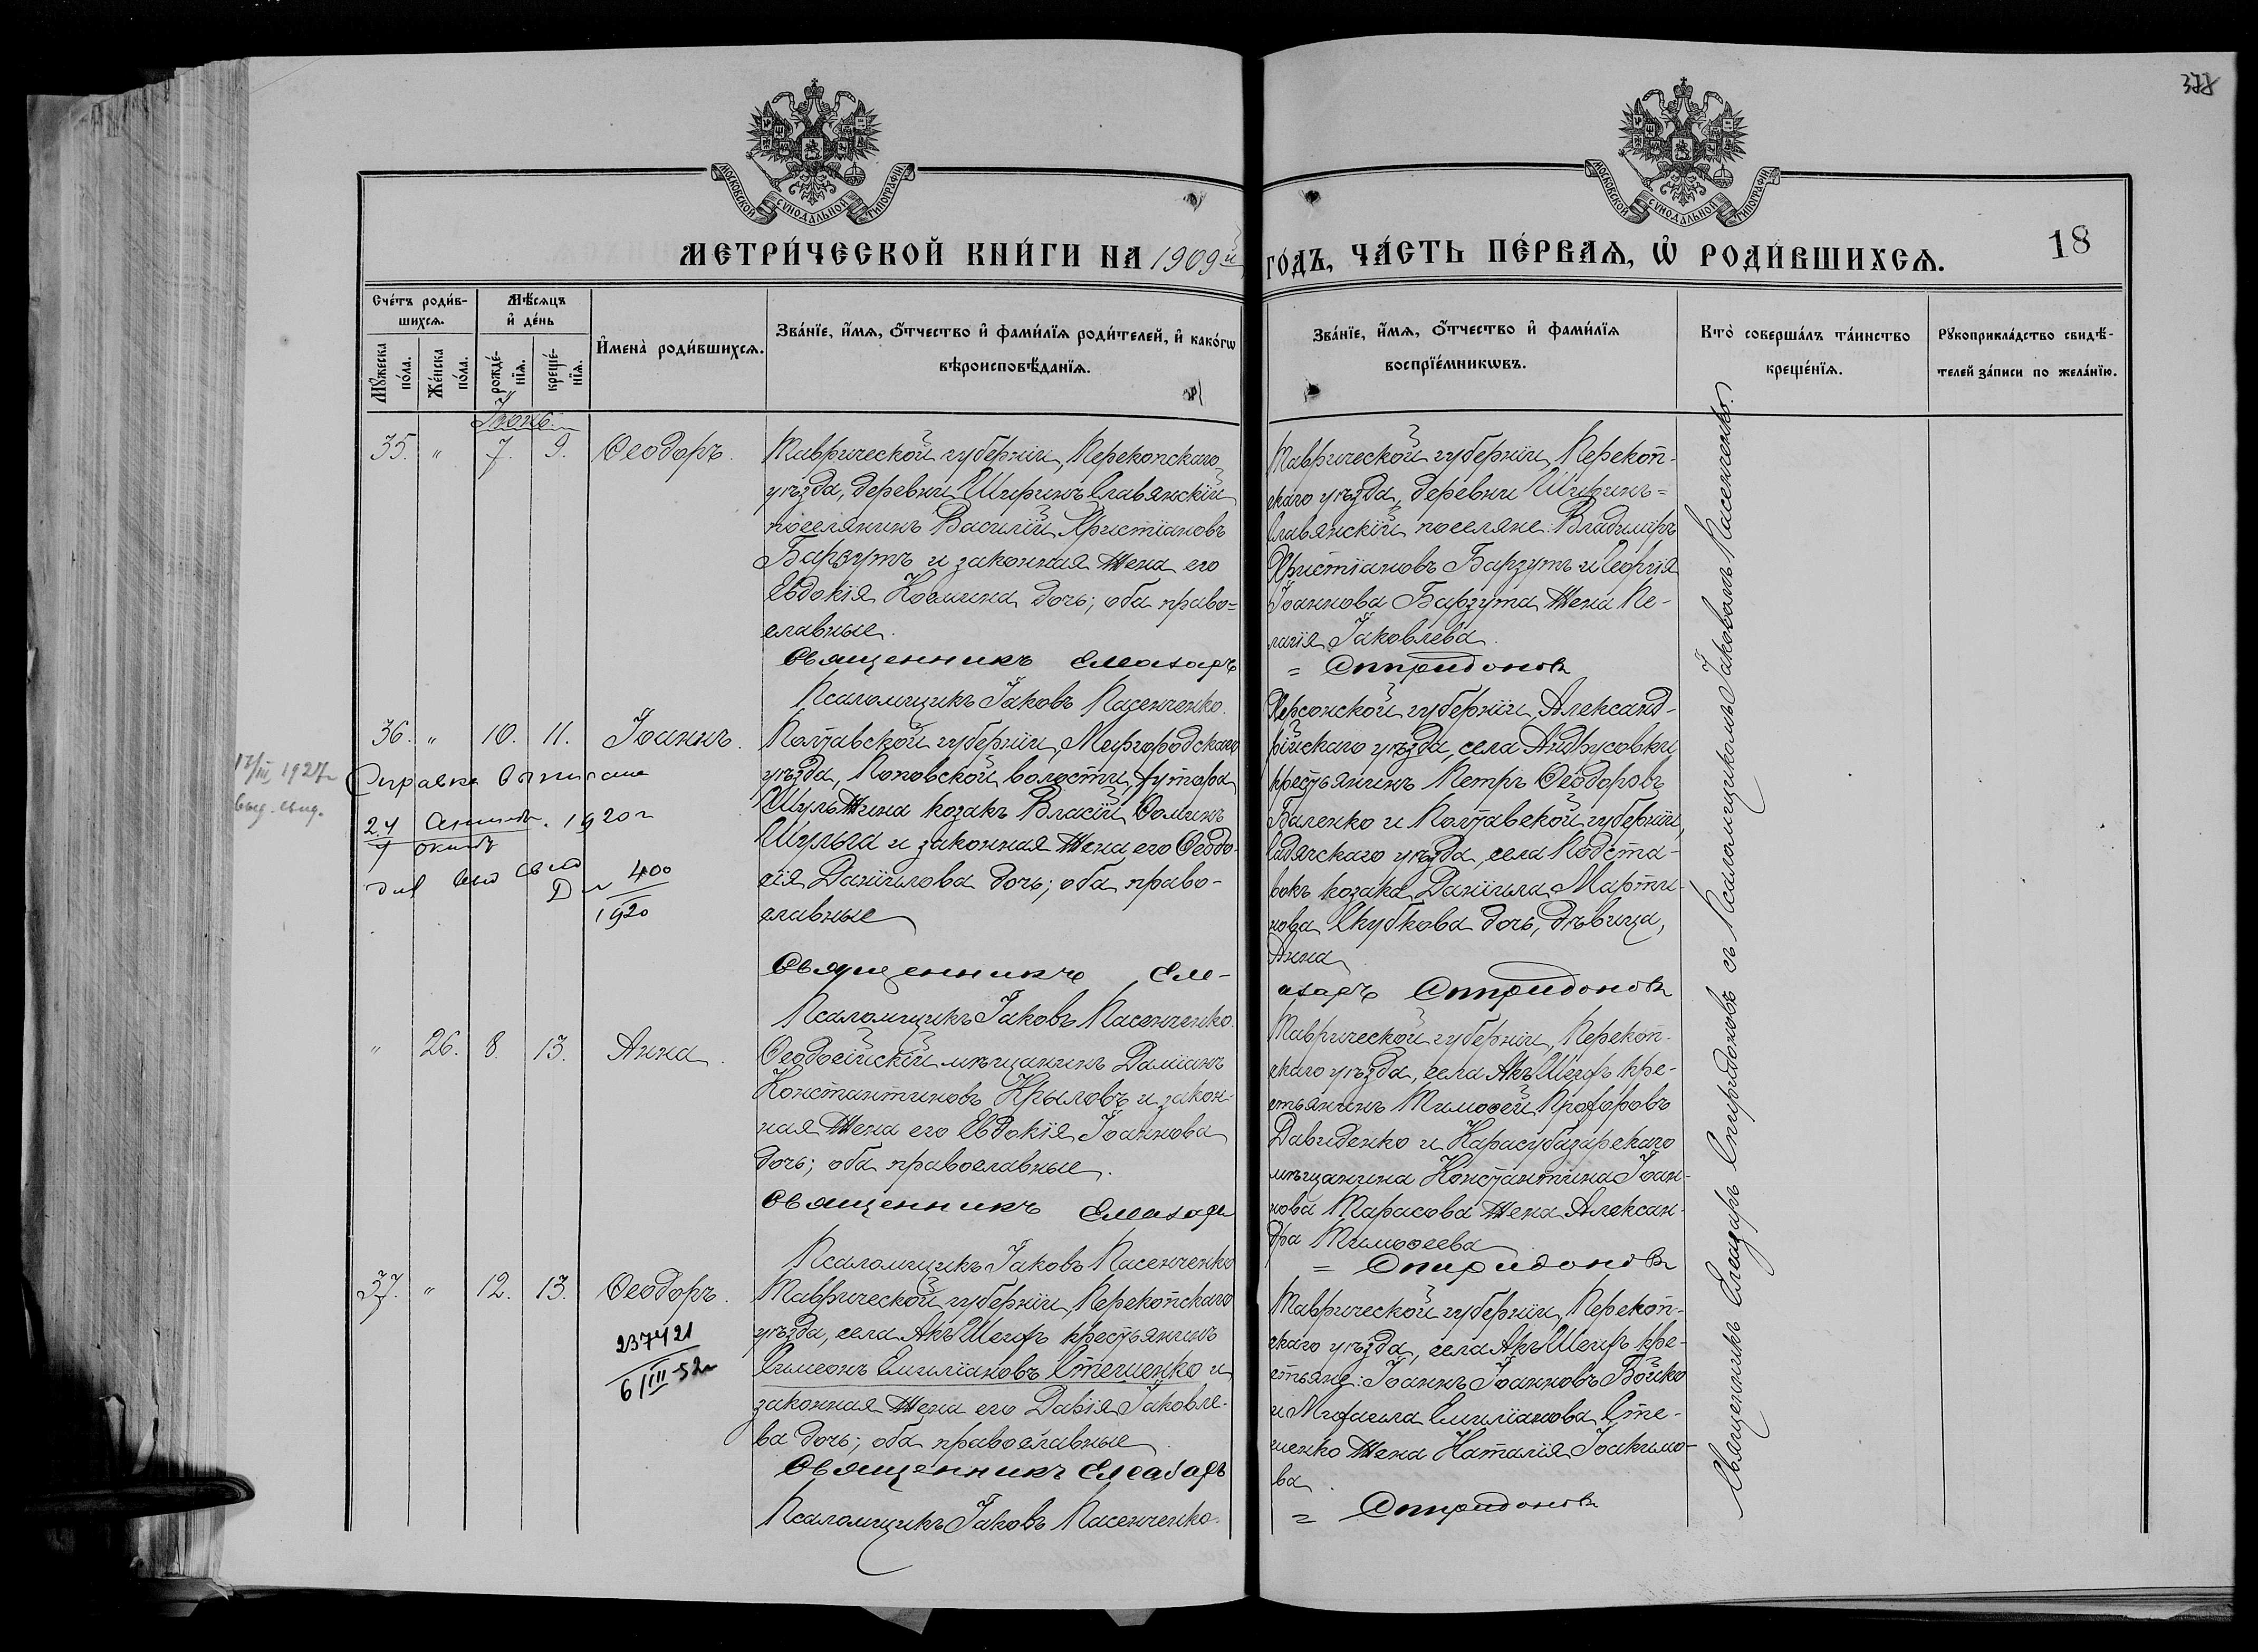 378
МОСКОВСКОЙ СѴНОДАЛЬНОЙ ТИПОГРАФІИ.
МОСКОВСКОЙ СѴНОДАЛЬНОЙ ТИПОГРАФІИ.
МЕТРИ́ЧЕСКОЙ КНИ́ГИ НА 1909й
ГО́ДЪ, ЧА́СТЬ ПЕ́РВАѦ, Ѡ҆ РОДИ́ВШИХСѦ.
18
Сче́тъ роди́в-
шихсѧ.
Мꙋ́жеска по́ла.
Же́нска по́ла.
Мѣ́сѧцъ
и҆ де́нь
рожде́-
нїѧ.
креще́-
нїѧ.
И҆мена̀ роди́вшихсѧ.
Зва́нїе, и҆́мѧ, ѻ҆́тчество и҆ фами́лїѧ роди́телей, и҆ како́гѡ
вѣроисповѣ́данїѧ.
Зва́нїе, и҆́мѧ, ѻ҆́тчество и҆ фами́лїѧ
воспрїе́мникѡвъ.
Кто̀ соверша́лъ та́инство
креще́нїѧ.
Рꙋкоприкла́дство свидѣ́-
телей за́писи по жела́нїю.
Іюнь.
35. " 7. 9. Ѳеодоръ.
Таврической губерніи, Перекопскаго
уѣзда, деревни Ширинъ Славянскій
поселянинъ Василій Христіановъ
Барзутъ и законная жена его
Евдокія Космина дочь; оба право=
славные.
Священникъ Елеазаръ
Псаломщикъ Іаковъ Пасенченко.
Таврической губерніи, Перекоп-
скаго уѣзда, деревни Ширинъ=
Славянскій поселяне: Владиміръ
Христіановъ Барзутъ и Георгія
Іоаннова Барзута жена Пе-
лагія Іаковлева.
= Спиридоновъ
36. " 10. 11. Іоаннъ.
Полтавской губерніи, Миргородскаго
уѣзда, Поповской волости, хутора
Шульжина козакъ Власій Ѳоминъ
Шульга и законная жена его Ѳеодо-
сія Даніилова дочь; оба право-
славные
Священникъ Еле-
Псаломщикъ Іаковъ Пасенченко.
Херсонской губерніи, Александ-
рійскаго уѣзда, села Андрусовки
крестьянинъ Петръ Ѳеодоровъ
Баленко и Полтавской губерніи,
Гадячскаго уѣзда, села Подста-
вокъ козака Даніила Марти-
нова Скубкова дочь, дѣвица,
Анна
азаръ Спиридоновъ
17/III 1927г
выд. свид.
Справка
1920г
400
1920
" 26. 8. 13. Анна.
Ѳеодосійскій мѣщанинъ Даміанъ
Константиновъ Крыловъ и закон-
ная жена его Евдокія Іоаннова
дочь; оба православные.
Священникъ Елеазаръ
Псаломщикъ Іаковъ Пасенченко
Таврической губерніи, Перекоп-
скаго уѣзда, села Акъ Шеихъ кре-
стьянинъ Тимоѳей Прохоровъ
Давиденко и Карасубазарскаго
мѣщанина Константина Іоан-
нова Тарасова жена Алексан-
дра Тимоѳеева
= Спиридоновъ
37. " 12. 13. Ѳеодоръ.
237421
6/III-52г
Таврической губерніи, Перекопскаго
уѣзда, села Акъ Шеихъ крестьянинъ
Симеонъ Емиліановъ Стешенко и
законная жена его Дарія Іаковле-
ва дочь; оба православные
Священникъ Елеазаръ
Псаломщикъ Іаковъ Пасенченко.
Таврической губерніи, Перекоп-
скаго уѣзда, села Акъ Шеихъ кре-
стьяне: Іоаннъ Іоанновъ Бойко
и Михаила Емиліанова Сте-
шенко жена Наталія Іоакимо-
ва.
= Спиридоновъ
Священникъ Елеазаръ Спиридоновъ съ Псаломщикомъ Іаковомъ Пасенченко.